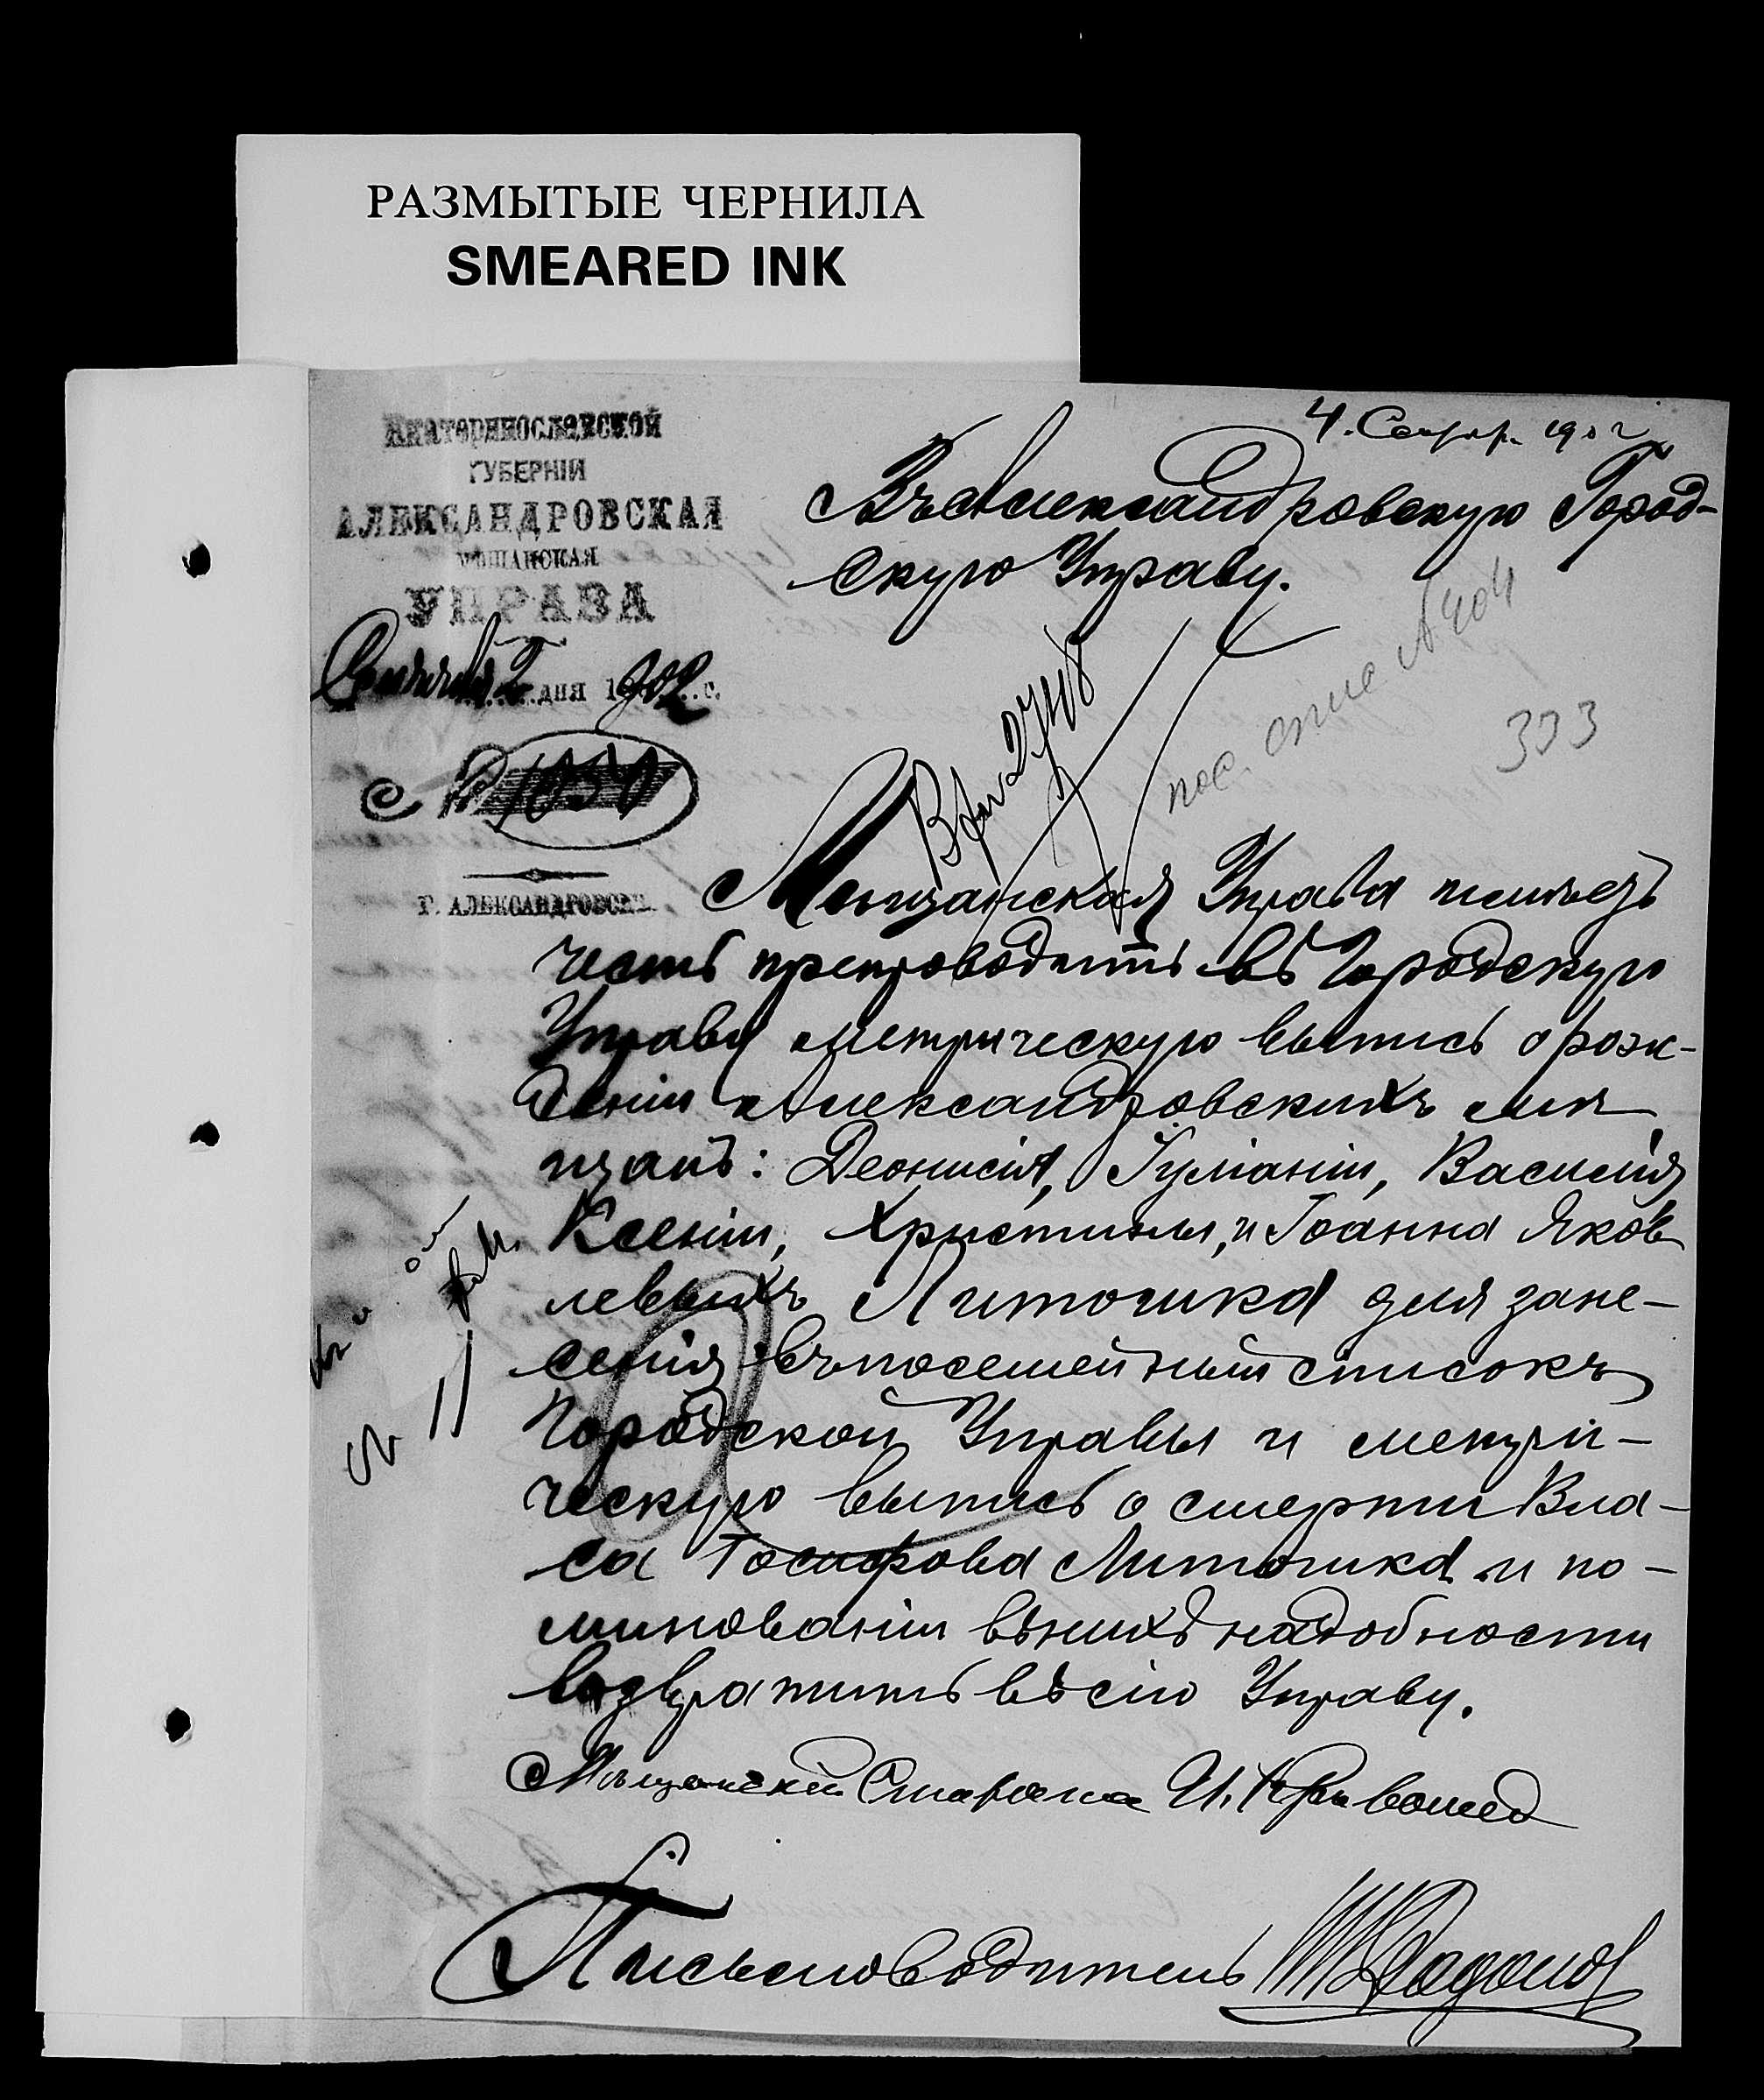 РАЗМЫТЫЕ ЧЕРНИЛА
SMEARED INK
4. Сентяр. 1902
Екатеринославской
ГУБЕРНІИ
АЛЕКСАНДРОВСКАЯ
МѢЩАНСКАЯ
УПРАВА
дня 1902 г.
№ 1050
Г. АЛЕКСАНДРОВСКЪ
Въ Александровскую Город-
скую Управу.
пос. спис № 404
333
Мѣщанская Управа имѣетъ
честь препроводить въ Городскую
Управу метрическую выпись о рож-
деніи Александровскихъ мѣ
щанъ: Деонисія, Іуліаніи, Василія
Ксеніи, Христины, и Іоанна Яков
левыхъ Литошка для зане-
сенія въ посемейный списокъ
Городской Управы и метри-
ческую выпись о смерти Вла-
са Іосифова Литошка и по-
минованіи въ нихъ надобности
возвратить въ сію Управу.
Мѣщанскій Староста И. Кривошея
Письмоводитель